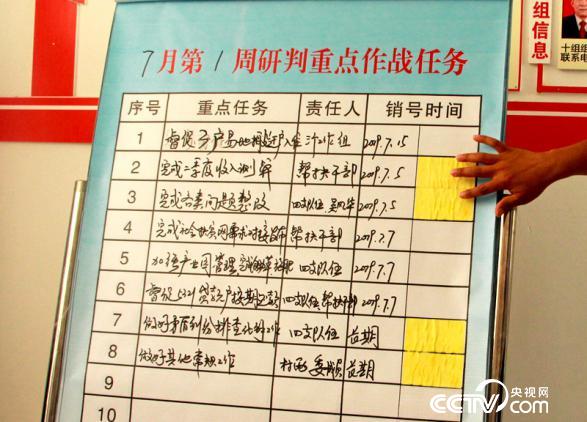 组信息
十组组
联系电
7月第1周研判重点作战任务
序号 重点任务 责任人 销号时间
1 督促 户易地搬迁户入住 工作组 2019.7.15
2 完成二季度收入测算 帮扶干部 2019.7.5
3 完成各类问题整改 四支队伍 2019.7.5
4 完成社会扶贫网需求对接发布 帮扶干部 2019.7.7
5 加强产业园管理 四支队伍 2019.7.7
6 督促5321贷款户按期还款 四支队伍 帮扶干部 2019.7.7
7 做好矛盾纠纷排查化解工作 四支队伍 长期
8 做好其他常规工作 村两委成员 长期
9
10
央视网
CCTV.com